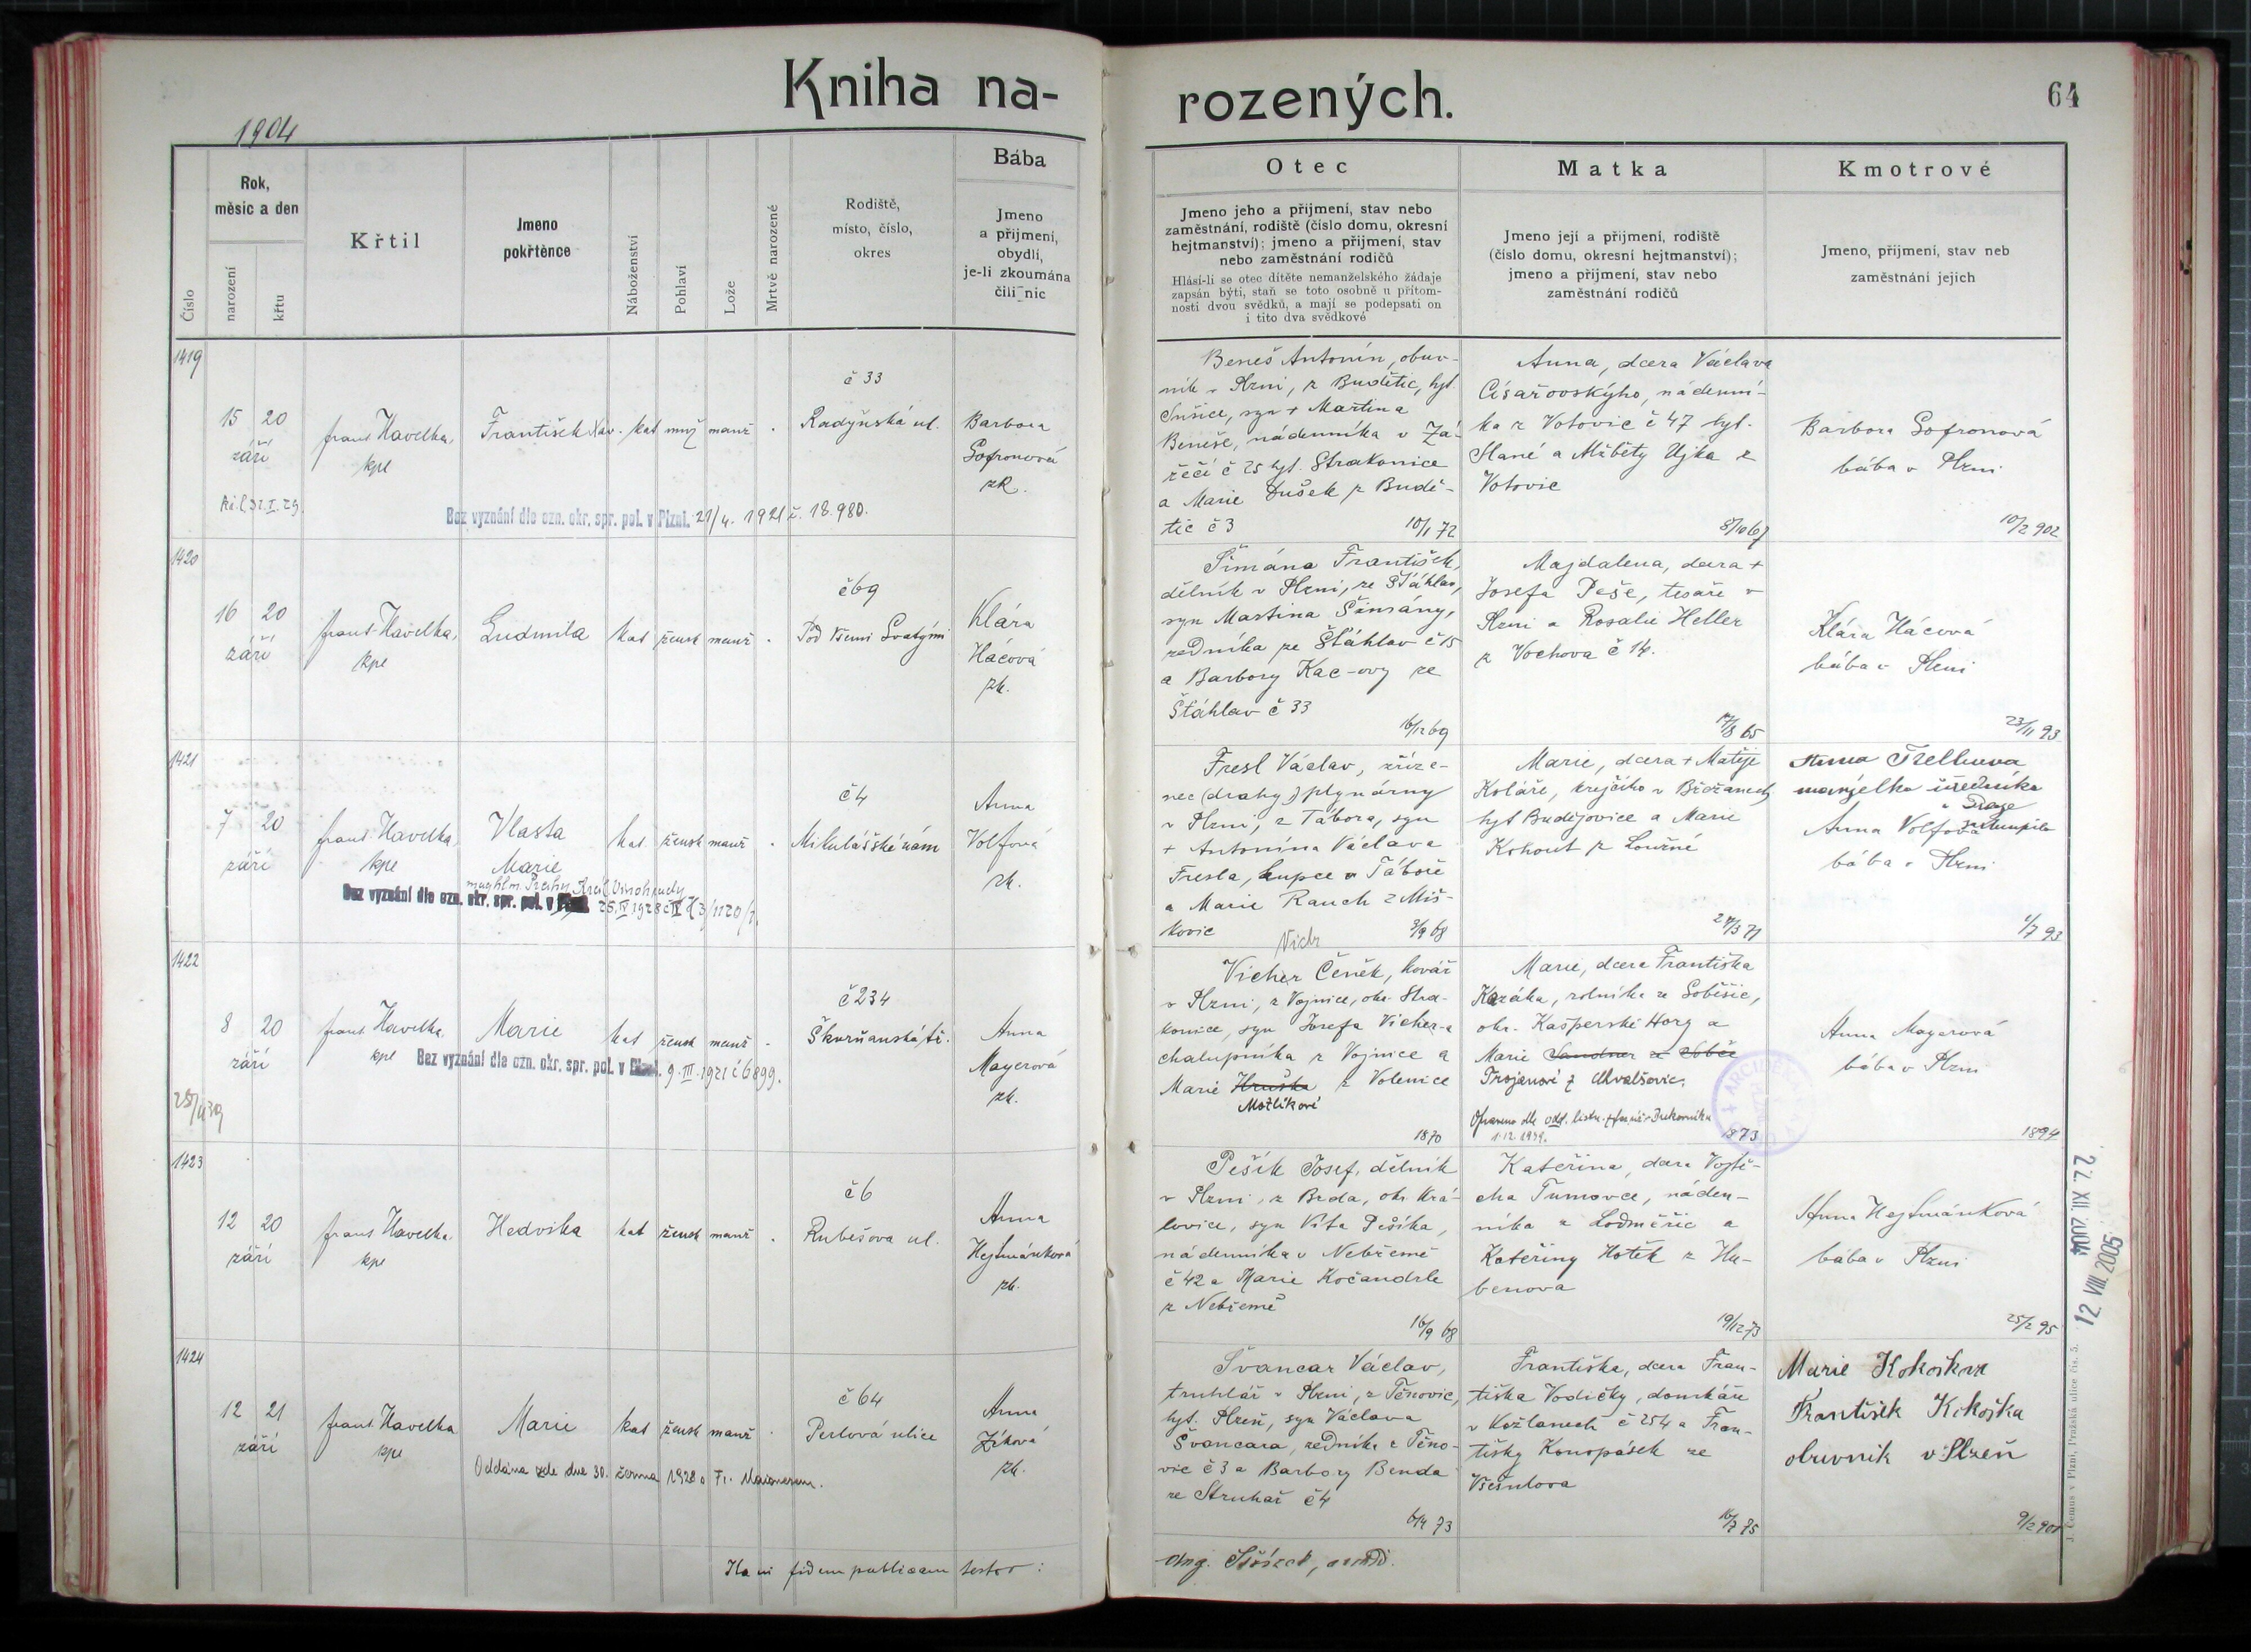 Kniha na-
rozených.
64
1904
Číslo
Rok,
měsíc a den
narození
křtu
Křtil
Jmeno
pokřtěnce
Náboženství
Pohlaví
Lože
Mrtvě narozené
Rodiště,
místo, číslo,
okres
Bába
Jmeno
a přijmení,
obydlí,
je-li zkoumána
čili nic
Otec
Jmeno jeho a přijmení, stav nebo
zaměstnání, rodiště (číslo domu, okresní
hejtmanství); jmeno a přijmení, stav
nebo zaměstnání rodičů
Hlásí-li se otec dítěte nemanželského žádaje
zapsán býti, staň se toto osobně u přítom-
nosti dvou svědků, a mají se podepsati on
i tito dva svědkové
Matka
Jmeno její a přijmení, rodiště
(číslo domu, okresní hejtmanství);
jmeno a přijmení, stav nebo
zaměstnání rodičů
Kmotrové
Jmeno, přijmení, stav neb
zaměstnání jejich
1419
15 20
září
frant Havelka,
kpl
František Xav.
kat muž manž
č 33
Radyňská ul.
Barbora
Sofronová
zk.
Bez vyznání dle ozn. okr. spr. pol. v Plzni. 21/4. 1921 č. 18.980.
Beneš Antonín, obuv-
ník v Plzni, z Budětic, hejt.
Sušice, syn + Martina
Beneše, nádenníka v Zá-
řečí č 25 hejt. Strakonice
a Marie Dušek z Budě-
tic č 3
10/1 72
Anna, dcera Václava
Císařovskýho, nádenní-
ka z Votovic č 47 hejt.
Slané a Alžběty Ujka z
Votovic
8/10 67
Barbora Sofronová
bába v Plzni
10/2 902
1420
16 20
září
frant Havelka,
kpl
Ludmila
kat žensk manž
č 69
Pod Všemi Svatými
Klára
Hácová
zk.
Šimána František,
dělník v Plzni, ze Šťáhlav,
syn Martina Šimány,
zedníka ze Šťáhlav č 15
a Barbory Kac-ovy ze
Šťáhlav č 33
16/12 69
Majdalena, dcera +
Josefa Peše, tesaře v
Plzni a Rosalie Heller
z Vochova č 14.
17/8 65
Klára Hácová
bába v Plzni
23/11 93
1421
7 20
září
frant Havelka
kpl
Vlasta
Marie
kat. žensk manž
č 4
Mikulášské nám
Anna
Volfová
zk.
Bez vyznání dle ozn. okr. spr. pol. v
Fresl Václav, zříze-
nec (drahy) plynárny
v Plzni, z Tábora, syn
+ Antonína Václava
Fresla, kupce v Táboře
a Marie Rauch z Miš-
kovic
3/9 68
Marie, dcera + Matěje
Koláře, krejčího v Břežanech
hejt Budějovice a Marie
Kohout z Loučné
27/3 71
manželka úředníka
Anna Volfová zastoupila
bába v Plzni
1/7 93
1422
8 20
září
frant Havelka
kpl
Marie
kat žensk manž
č 234
Škvrňanská tř.
Anna
Mayerová
zk.
Bez vyznání dle ozn. okr. spr. pol. v Plzni. 9.III.1921 č 6899.
Vichr
Vicher Čeněk, kovář
v Plzni, z Vojnice, okr. Stra-
konice, syn Josefa Vicher-a
chalupníka z Vojnice a
Marie Hruška z Volenice
Mazlíkové
1870
Marie, dcera Františka
Kozáka, rolníka ze Soběšic,
okr. Kašperské Hory a
Marie Sandner
Trojanové z Chvalšovic.
1.12.1939.
1873
Anna Mayerová
bába v Plzni
1894
1423
12 20
září
frant Havelka
kpl
Hedvika
kat žensk manž
č 6
Rubešova ul.
Anna
Hejtmánková
zk.
Pešík Josef, dělník
v Plzni, z Brda, okr. Krá-
lovice, syn Víta Pešíka,
nádenníka v Nebřemě
č 42 a Marie Kočandrle
z Nebřemě
16/9 68
Kateřina, dcera Vojtě-
cha Tumovce, náden-
níka z Loďměřic a
Kateřiny Hotěk z Hu-
benova
19/12 73
Anna Hejtmánková
bába v Plzni
25/2 95
27. XII. 2004
12. VIII. 2005
1424
12 21
září
frant Havelka
kpl
Marie
kat žensk manž
č 64
Perlová ulice
Anna
Zíková
zk.
Oddána zde dne 30. června 1928 s Fr.
Švancar Václav,
truhlář v Plzni, z Těnovic,
hejt. Plzeň, syn Václava
Švancara, zedníka z Těno-
vic č 3 a Barbory Benda
ze Struhař č 4
6/4 73
Františka, dcera Fran-
tiška Vodičky, domkáře
v Kožlanech č 254 a Fran-
tišky Konopásek ze
Všesulova
16/7 75
Marie Kokoškva
František Kokoška
obuvník v Plzeň
9/2 901
Ita in fidem publicam testor:
J. Čemus v Plzni, Pražská ulice čís. 5.